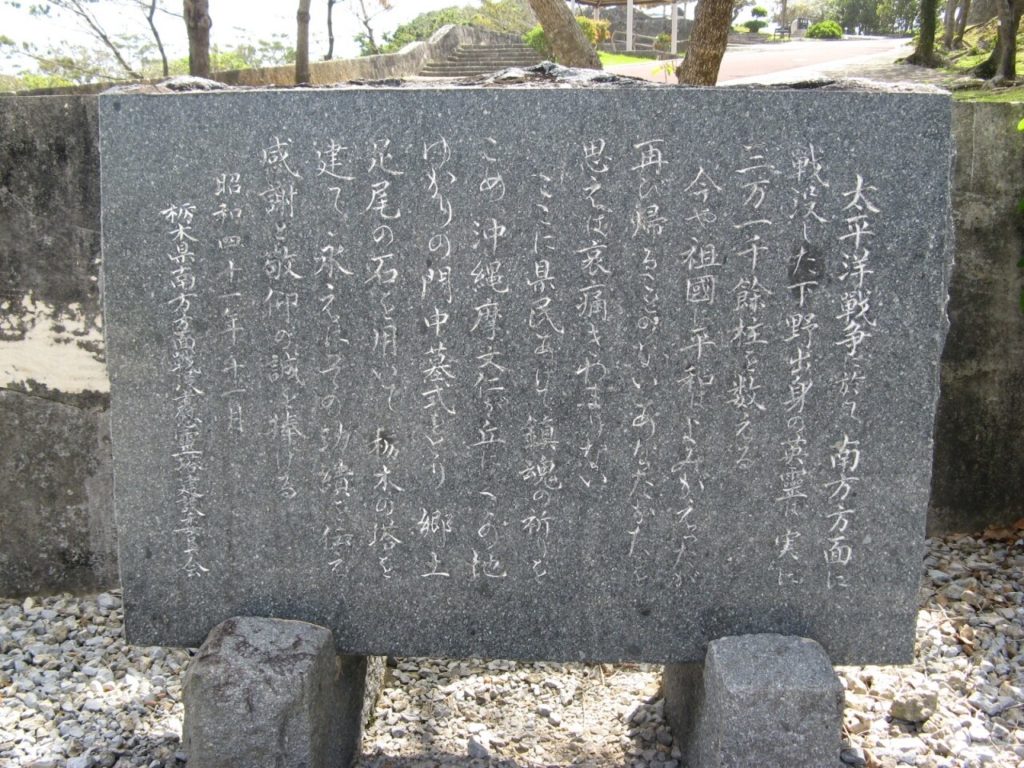 太平洋戦争に於て南方方面に
戦没した下野出身の英霊は実に
三万一千餘柱を数える
今や祖國に平和はよみがえったが
再び帰ることのないあなたがたを
思えば哀痛きわまりない
ここに県民あげて鎮魂の祈りを
こめ沖縄摩文仁が丘にこの地
ゆかりの門中墓式をとり郷土
足尾の石を用いて栃木の塔を
建て永えにその功績を伝え
感謝と敬仰の誠を捧げる
昭和四十一年十一月
栃木県南方方面戦没者慰霊塔建設委員会